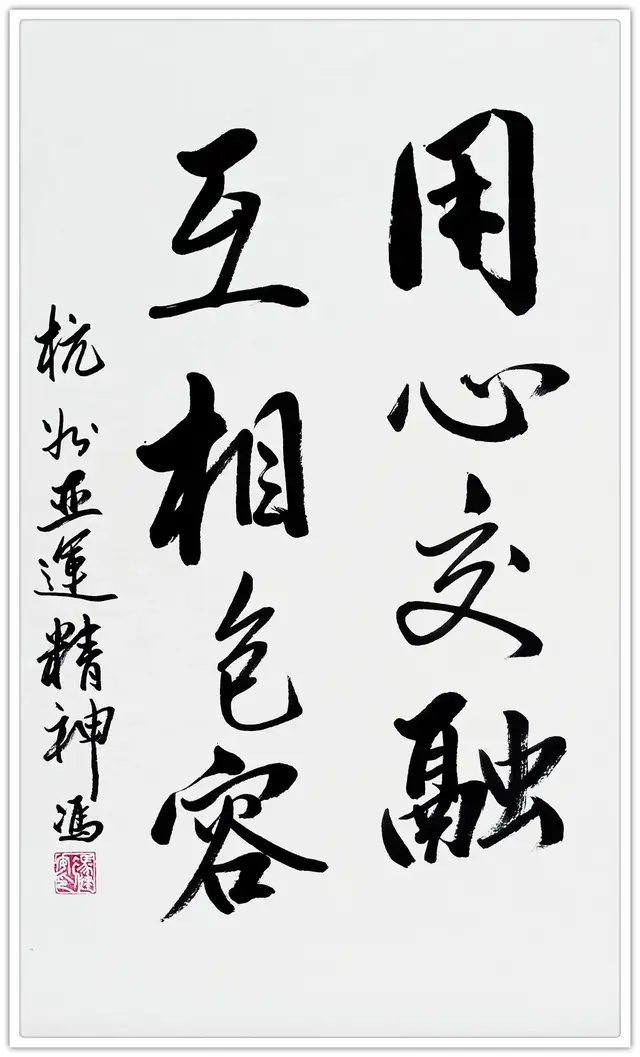 用心交融
互相包容
杭州亚運精神馮